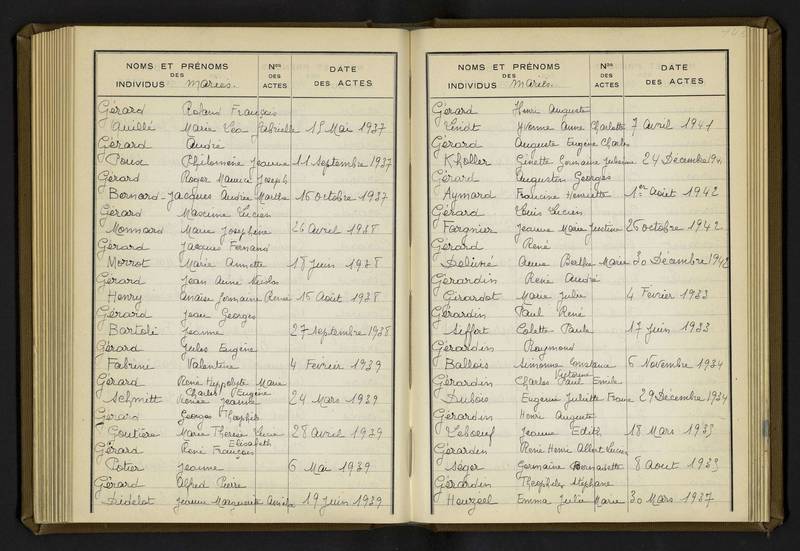 NOMS ET PRÉNOMS Nos DATE
DES DES DES ACTES
INDIVIDUS Mariés. ACTES
Gérard Roland François
Quillé Marie Léa Gabrielle 15 Mai 1937
Gérard André
Poux Philomène Jeanne 11 Septembre 1937
Gérard Roger Maurice Joseph
Bernard-Jacques Andrée Marthe 16 Octobre 1937
Gérard Maxime Lucien
Monnard Marie Joséphine 26 Avril 1938
Gérard Jacques Fernand
Morrot Marie Annette 18 Juin 1938
Gérard Jean Aimé Nicolas
Henry Germaine Renée 16 Août 1938
Gérard Jean Georges
Bartoli Jeanne 27 Septembre 1938
Gérard Jules Eugène
Valentine 4 Février 1939
Gérard René Hippolyte Marie
Charles Eugène
Schmitt Renée Jeanne 24 Mars 1939
Gérard Georges Théophile
Goutière Marie Thérèse Lucie 28 Avril 1939
Elisabeth
Gérard René François
Potier Jeanne 6 Mai 1939
Gérard Alfred Pierre
Didelot Jeanne Marguerite 19 Juin 1939
NOMS ET PRÉNOMS Nos DATE
DES DES DES ACTES
INDIVIDUS Mariés. ACTES
Gérard Henri Auguste
Lindt Yvonne Anne Charlotte 7 Avril 1941
Gérard Auguste Eugène Charles
Kholler Ginette Germaine Julienne 24 Décembre 1941
Gérard Augustin Georges
Aymard Francine Henriette 1er Août 1942
Gérard Louis Lucien
Fargnier Jeanne Marie Justine 26 Octobre 1942
Gérard René
Anne Berthe Marie 30 Décembre 1942
Gérardin René André
Girardot Marie Julie 4 Février 1933
Gérardin Paul René
Siffert Colette Paule 17 Juin 1933
Gérardin Raymond
Ballois Simonne Constance 6 Novembre 1934
Gérardin Charles Paul Emile
Dubois Eugénie Juliette France 29 Décembre 1934
Gérardin Henri Auguste
Leboeuf Jeanne Edith 18 Mars 1933
Gérardin René Henri Albert Lucien
Séger Germaine Bernadette 8 Août 1933
Gérardin Théophile Stéphane
Heuzéel Emma Julie Marie 30 Mars 1937